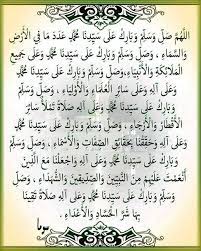 اللَّهُمَّ صَلِّ وَسَلِّمْ وَبَارِكْ عَلَى سَيِّدِنَا مُحَمَّدٍ عَدَدَ مَا فِي الْأَرْضِ
وَالسَّمَاءِ ، وَصَلِّ وَسَلِّمْ وَبَارِكْ عَلَى سَيِّدِنَا مُحَمَّدٍ وَعَلَى جَمِيعِ
الْمَلَائِكَةِ وَالْأَنْبِيَاءِ، وَصَلِّ وَسَلِّمْ وَبَارِكْ عَلَى سَيِّدِنَا مُحَمَّدٍ
وَعَلَى آلِهِ وَعَلَى سَائِرِ الْعُلَمَاءِ وَالْأَوْلِيَاءِ ، وَصَلِّ
وَسَلِّمْ وَبَارِكْ عَلَى سَيِّدِنَا مُحَمَّدٍ وَعَلَى آلِهِ صَلَاةً تَمْلَأُ سَائِرَ
الْأَقْطَارِ وَالْأَرْجَاءِ ، وَصَلِّ وَسَلِّمْ وَبَارِكْ عَلَى سَيِّدِنَا مُحَمَّدٍ
وَعَلَى آلِهِ وَحَقِّقْنَا بِحَقَائِقِ الصِّفَاتِ وَالْأَسْمَاءِ ، وَصَلِّ وَسَلِّمْ
وَبَارِكْ عَلَى سَيِّدِنَا مُحَمَّدٍ وَعَلَى آلِهِ وَاجْعَلْنَا مَعَ الَّذِينَ
أَنْعَمْتَ عَلَيْهِمْ مِنَ النَّبِيِّينَ وَالصِّدِّيقِينَ وَالشُّهَدَاءِ ، وَصَلِّ
وَسَلِّمْ وَبَارِكْ عَلَى سَيِّدِنَا مُحَمَّدٍ وَعَلَى آلِهِ صَلَاةً تَقِينَا
بِهَا شَرَّ الْحُسَّادِ وَالْأَعْدَاءِ .